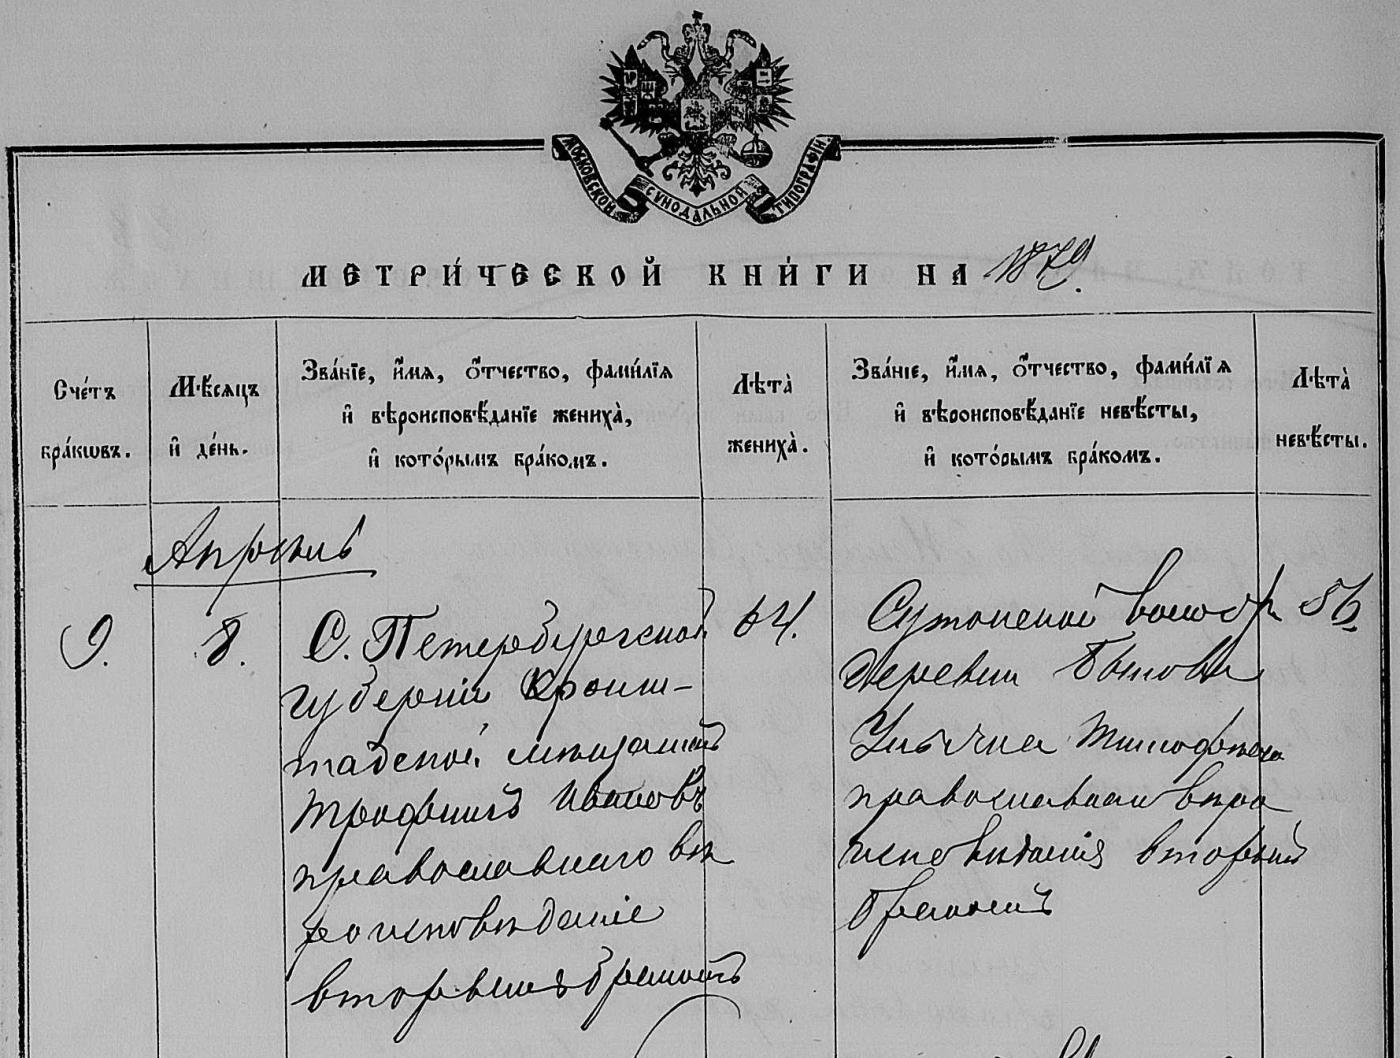 МОСКОВСКОЙ СѴНОДАЛЬНОЙ ТИПОГРАФІИ
МЕТРИ́ЧЕСКОЙ КНИ́ГИ НА 1879.
Сче́тъ
бра́кѡвъ.
Мѣ́сяцъ
и҆ де́нь.
Зва́нїе, и҆́мя, ѻ҆́тчество, фами́лїя
и҆ вѣроисповѣ́данїе жениха̀,
и҆ кото́рымъ бра́комъ.
Лѣта̀
жениха̀.
Зва́нїе, и҆́мя, ѻ҆́тчество, фами́лїя
и҆ вѣроисповѣ́данїе невѣ́сты,
и҆ кото́рымъ бра́комъ.
Лѣта̀
невѣ́сты.
Апрѣль
9.
8.
С. Петербургской
губерніи Крони-
тадской мещанинъ
Трофимъ Ивановъ
православнаго вѣ
роисповѣданіе
вторымъ бракомъ
64.
Сутокской волос
деревни
Тимофеева
православнаи вѣро
исповѣданія вторымъ
бракомъ
56.